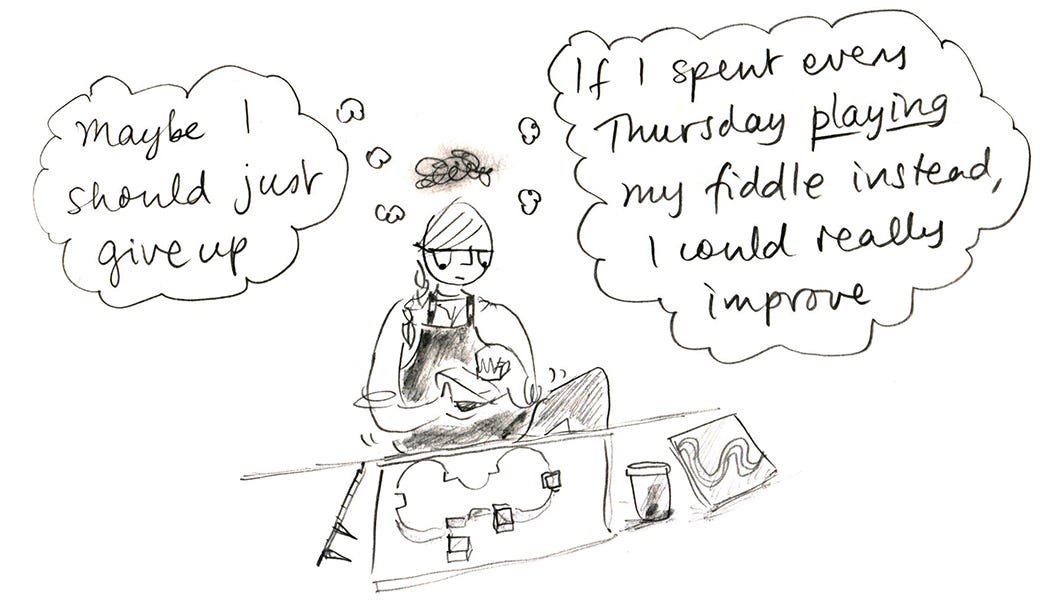 Maybe I
should just
give up
If I spent every
Thursday playing
my fiddle instead,
I could really
improve